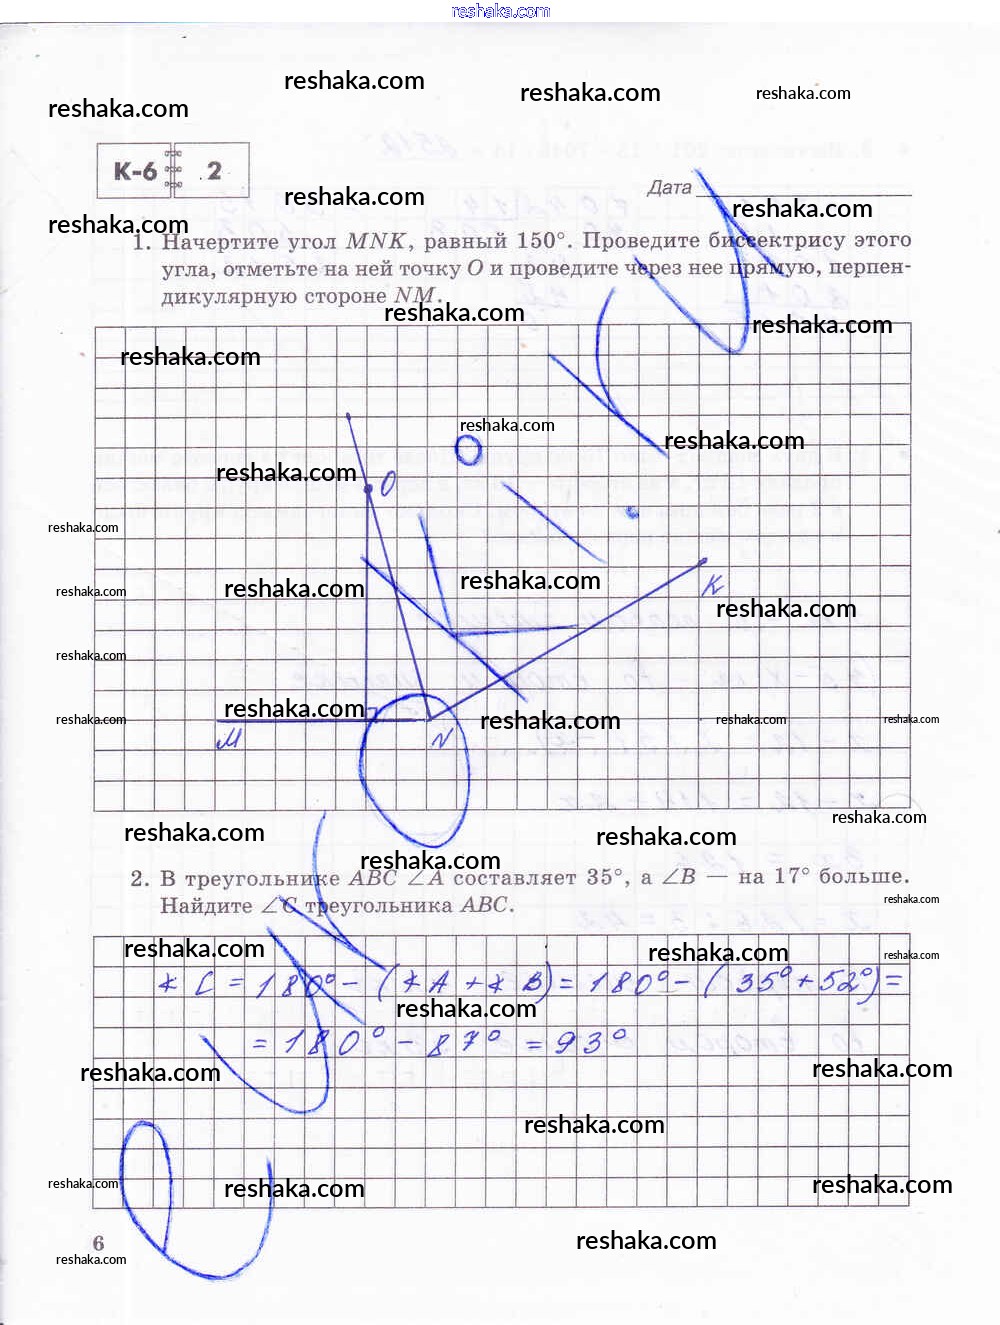 reshaka.com
reshaka.com
reshaka.com
reshaka.com
reshaka.com
К-6 2
reshaka.com
Дата
reshaka.com
reshaka.com
1. Начертите угол MNK, равный 150°. Проведите биссектрису этого
угла, отметьте на ней точку O и проведите через нее прямую, перпен-
дикулярную стороне NM.
reshaka.com
reshaka.com
reshaka.com
reshaka.com
reshaka.com
reshaka.com
O
reshaka.com
reshaka.com
reshaka.com
reshaka.com
K
reshaka.com
reshaka.com
reshaka.com
reshaka.com
reshaka.com
reshaka.com
reshaka.com
reshaka.com
M N
reshaka.com
reshaka.com
reshaka.com
reshaka.com
2. В треугольнике ABC ∠A составляет 35°, а ∠B — на 17° больше.
Найдите ∠C треугольника ABC.
reshaka.com
reshaka.com
reshaka.com
reshaka.com
∠C = 180° - (∠A + ∠B) = 180° - (35° + 52°) =
reshaka.com
= 180° - 87° = 93°
reshaka.com
reshaka.com
reshaka.com
reshaka.com
reshaka.com
reshaka.com
6
reshaka.com
reshaka.com